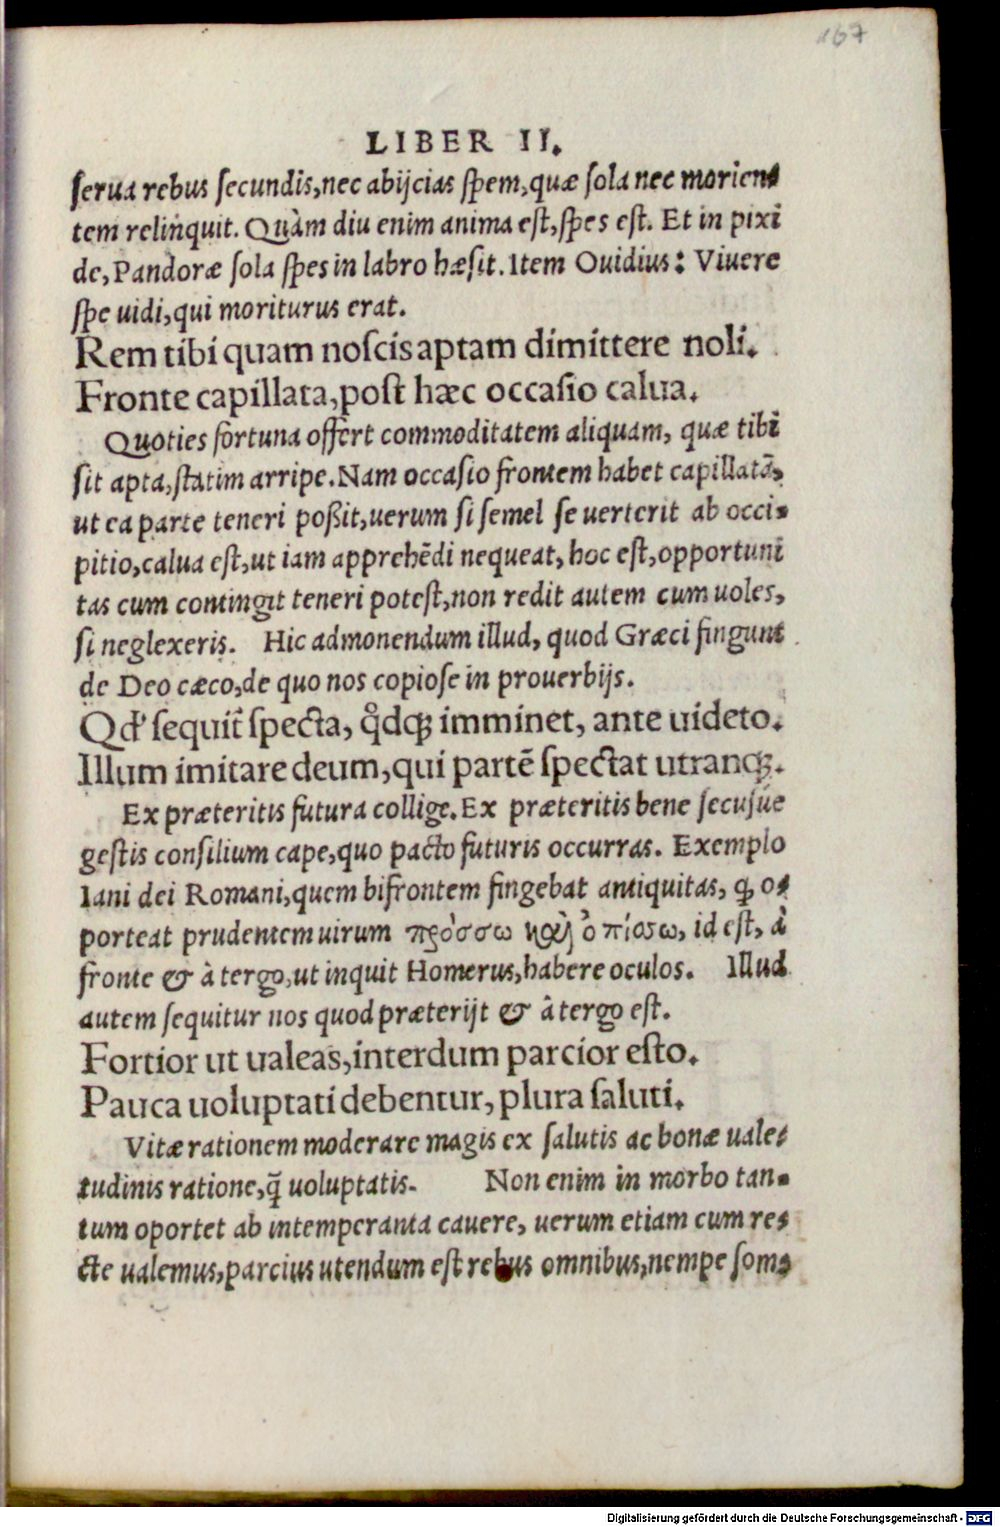 167
LIBER II.
serua rebus secundis, nec abijcias spem, quæ sola nec morien-
tem relinquit. Quàm diu enim anima est, spes est. Et in pixi
de, Pandoræ sola spes in labro hæsit. Item Ouidius: Viuere
spe uidi, qui moriturus erat.
Rem tibi quam noscis aptam dimittere noli.
Fronte capillata, post hæc occasio calua.
Quoties fortuna offert commoditatem aliquam, quæ tibi
sit apta, statim arripe. Nam occasio frontem habet capillatā,
ut ea parte teneri poßit, uerum si semel se uerterit ab occi-
pitio, calua est, ut iam apprehēdi nequeat, hoc est, opportuni
tas cum contingit teneri potest, non redit autem cum uoles,
si neglexeris. Hic admonendum illud, quod Græci fingunt
de Deo cæco, de quo nos copiose in prouerbijs.
Qd' sequit̃ specta, q̊dqꝫ imminet, ante uideto.
Illum imitare deum, qui partē spectat utranqꝫ.
Ex præteritis futura collige. Ex præteritis bene secusúe
gestis consilium cape, quo pacto futuris occurras. Exemplo
Iani dei Romani, quem bifrontem fingebat antiquitas, ꝙ o-
porteat prudentem uirum πρόσσω καὶ ὀπίσω, id est, à
fronte & à tergo, ut inquit Homerus, habere oculos. Illud
autem sequitur nos quod præterijt & à tergo est.
Fortior ut ualeas, interdum parcior esto.
Pauca uoluptati debentur, plura saluti.
Vitæ rationem moderare magis ex salutis ac bonæ uale-
tudinis ratione, q̃ uoluptatis. Non enim in morbo tan-
tum oportet ab intemperantia cauere, uerum etiam cum re-
cte ualemus, parcius utendum est rebus omnibus, nempe som-
Digitalisierung gefördert durch die Deutsche Forschungsgemeinschaft - DFG